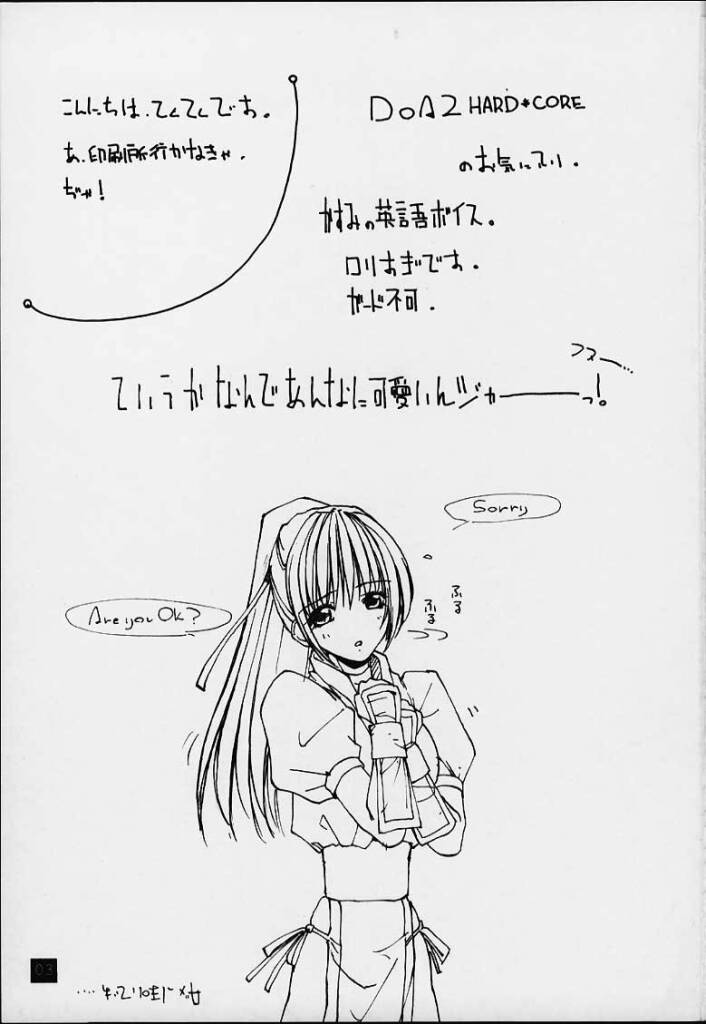 こんにちは、てくてくです。
あ、印刷所行かなきゃ、
ぢゃ!
DOA2 HARD*CORE
のお気に入り。
かすみの英語ボイス。
ロリすぎです。
ガード不可。
フヌー…
ていうかなんであんなに可愛いんジャーーーっ!。
Sorry
Are you Ok?
ふる
ふる
03